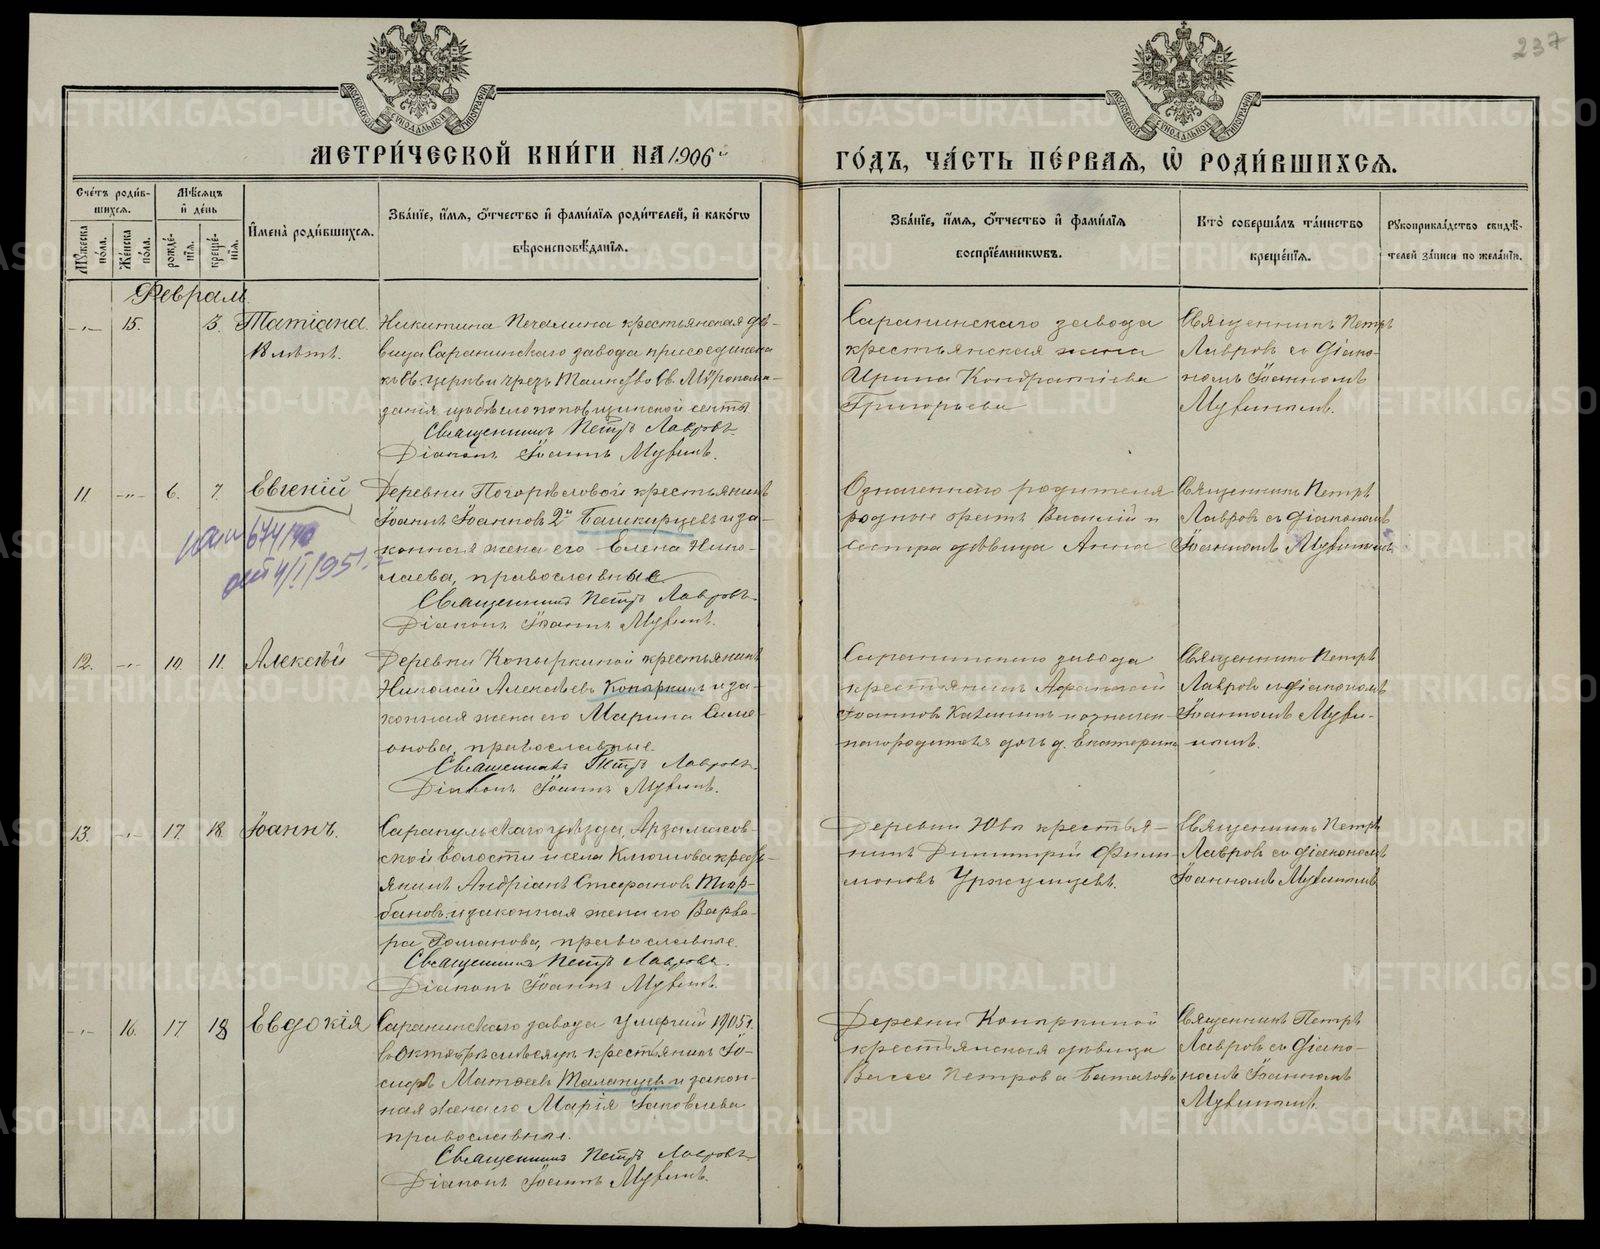 237
МОСКОВСКОЙ СѴНОДАЛЬНОЙ ТИПОГРАФІИ
МОСКОВСКОЙ СѴНОДАЛЬНОЙ ТИПОГРАФІИ
МЕТРИ́ЧЕСКОЙ КНИ́ГИ НА 1906й
ГО́ДЪ, ЧА́СТЬ ПЕ́РВАѦ, Ѡ҆ РОДИ́ВШИХСѦ.
Сче́тъ роди́в-
шихсѧ.
Мꙋ́жеска по́ла.
Же́нска по́ла.
Мѣ́сѧцъ
и҆ де́нь
рожде́-
нїѧ.
креще́-
нїѧ.
И҆мена̀ роди́вшихсѧ.
Зва́нїе, и҆́мѧ, ѻ҆́тчество и҆ фами́лїѧ роди́телей, и҆ како́гѡ
вѣроисповѣ́данїѧ.
Зва́нїе, и҆́мѧ, ѻ҆́тчество и҆ фами́лїѧ
воспрїе́мникѡвъ.
Кто̀ соверша́лъ та́инство
креще́нїѧ.
Рꙋкоприкла́дство свидѣ́-
телей за́писи по жела́нїю.
Февраль
-"- 15. 3. Татіана
8 лѣтъ.
Никитина крестьянская дѣ-
вица Саранинскаго завода присоединена
къ церкви чрезъ Таинство Св. Мѵропома-
занія секты
Священникъ Петръ Лавровъ.
Діаконъ Іоаннъ
Саранинскаго завода
крестьянская жена
Ирина Кондратіева
Григорьева
Священникъ Петръ
Лавровъ съ діако-
номъ Іоанномъ
11. -"- 6. 7. Евгеній
Деревни Погорѣловой крестьянинъ
Іоаннъ Іоанновъ 2й Башкирцевъ и за-
конная жена его Елена Нико-
лаева, православные
Священникъ Петръ Лавровъ.
Діаконъ Іоаннъ
Означеннаго родителя
родные братъ Василій и
сестра дѣвица Анна
Священникъ Петръ
Лавровъ съ діакономъ
Іоанномъ
674/
от 4/I/1951.
12. -"- 10. 11. Алексѣй
Деревни Копыркиной крестьянинъ
Николай Алексѣевъ Копыркинъ и за-
конная жена его Марина Симе-
онова, православные.
Священникъ Петръ Лавровъ.
Діаконъ Іоаннъ
Саранинскаго завода
крестьянинъ Афанасій
Іоанновъ Калининъ и означен-
наго родителя дочь д. Екатерина
Священникъ Петръ
Лавровъ съ діакономъ
Іоанномъ
13. -"- 17. 18. Іоаннъ.
Сарапульскаго уѣзда, Арзамасов-
ской волости и села Ключиова кресть-
янинъ Андріанъ Стефановъ Тюр-
бановъ и законная жена его Варва-
ра Романова, православные.
Священникъ Петръ Лавровъ.
Діаконъ Іоаннъ
Деревни Ювы крестья-
нинъ Димитрій Фили-
моновъ Уржумцевъ.
Священникъ Петръ
Лавровъ съ діакономъ
Іоанномъ
-"- 16. 17 18 Евдокія
Саранинскаго завода умершій 1905 г.
въ Октябрѣ мѣсяцѣ крестьянинъ Іо-
сифъ Матѳеевъ Талапуевъ и закон-
ная жена его Марія Іаковлева
православные.
Священникъ Петръ Лавровъ.
Діаконъ Іоаннъ
Деревни Копыркиной
крестьянская дѣвица
Васса Петрова Батакова
Священникъ Петръ
Лавровъ съ діако-
номъ Іоанномъ
METRIKI.GASO-URAL.RU